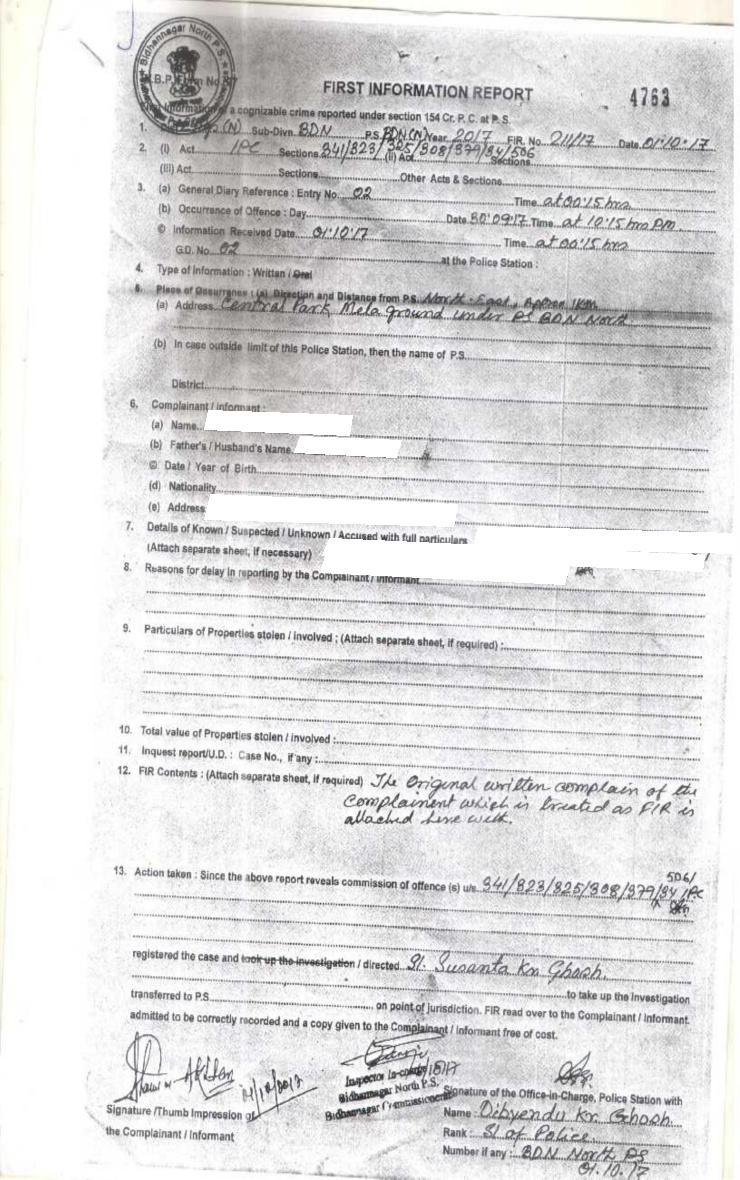 Bidhannagar North P.S.
FIRST INFORMATION REPORT
4763
of a cognizable crime reported under section 154 Cr. P. C. at P.S.
1. (N) Sub-Divn. BDN P.S. BDN(N) Year 2017 FIR. No. 211/17 Date 01·10·17
2. (I) Act IPC Sections 341/323/325/308/379/34/506 (II) Act Sections
(III) Act Sections Other Acts & Sections
3. (a) General Diary Reference : Entry No. 02 Time at 00:15 hrs
(b) Occurrence of Offence : Day Date 30·09·17 Time at 10:15 hrs PM
© Information Received Date 01·10·17 Time at 00:15 hrs
G.D. No. 02 at the Police Station :
4. Type of Information : Writtan / Oral
5. Place of Occurrence : (a) Direction and Distance from P.S. North-East, Approx 1km
(a) Address Central Park Mela ground under PS BDN North
(b) In case outside limit of this Police Station, then the name of P.S.
District
6. Complainant / Informant :
(a) Name
(b) Father's / Husband's Name
© Date / Year of Birth
(d) Nationality
(e) Address
7. Details of Known / Suspected / Unknown / Accused with full particulars
(Attach separate sheet, if necessary)
8. Reasons for delay in reporting by the Complainant / Informant
9. Particulars of Properties stolen / involved ; (Attach separate sheet, if required) :
10. Total value of Properties stolen / involved :
11. Inquest report/U.D. : Case No., if any :
12. FIR Contents : (Attach separate sheet, if required) The Original written complain of the
Complainent which is treated as FIR is
attached here with.
506/
13. Action taken : Since the above report reveals commission of offence (s) u/s 341/323/325/308/379/34 IPC
registered the case and took up the investigation / directed SI. Susanta Kr. Ghosh.
to take up the Investigation
transferred to P.S. on point of jurisdiction. FIR read over to the Complainant / Informant.
admitted to be correctly recorded and a copy given to the Complainant / Informant free of cost.
Inspector In-charge
Bidhannagar North P.S.
Bidhannagar Commissionerate
Signature /Thumb Impression of
the Complainant / Informant
Signature of the Office-in-Charge, Police Station with
Name : Dibyendu Kr. Ghosh.
Rank : SI of Police
Number if any : BDN North PS
01.10.17